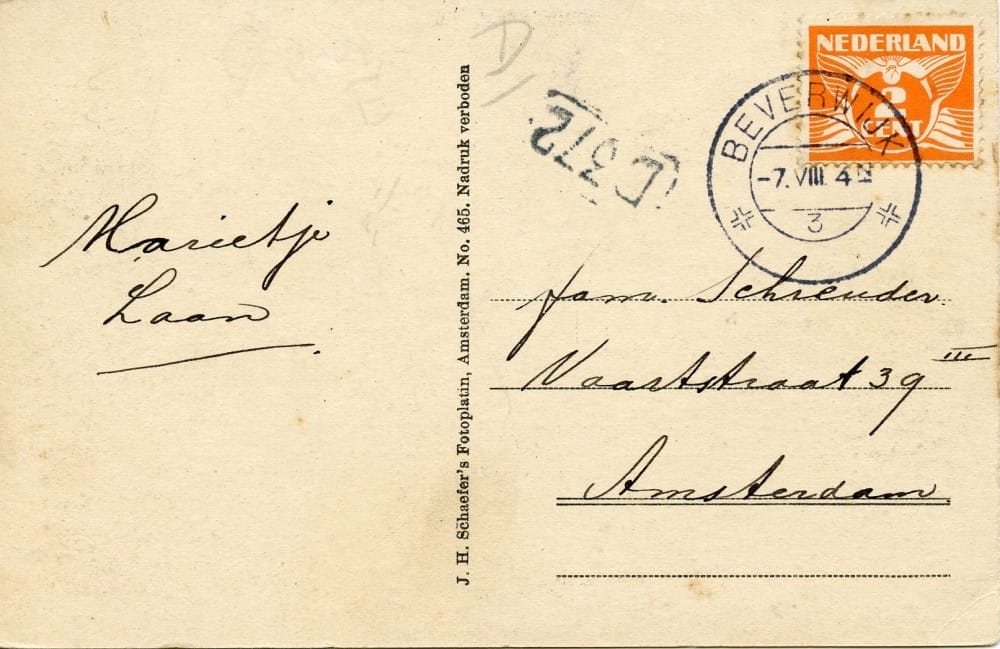 Marietje
Laan
J. H. Schaefer's Fotoplatin, Amsterdam. No. 465. Nadruk verboden
D
C 372
NEDERLAND
2
CENT
BEVERWIJK
-7.VIII. 4 N
3
fam. Schreuder.
Vaartstraat 39 III
Amsterdam